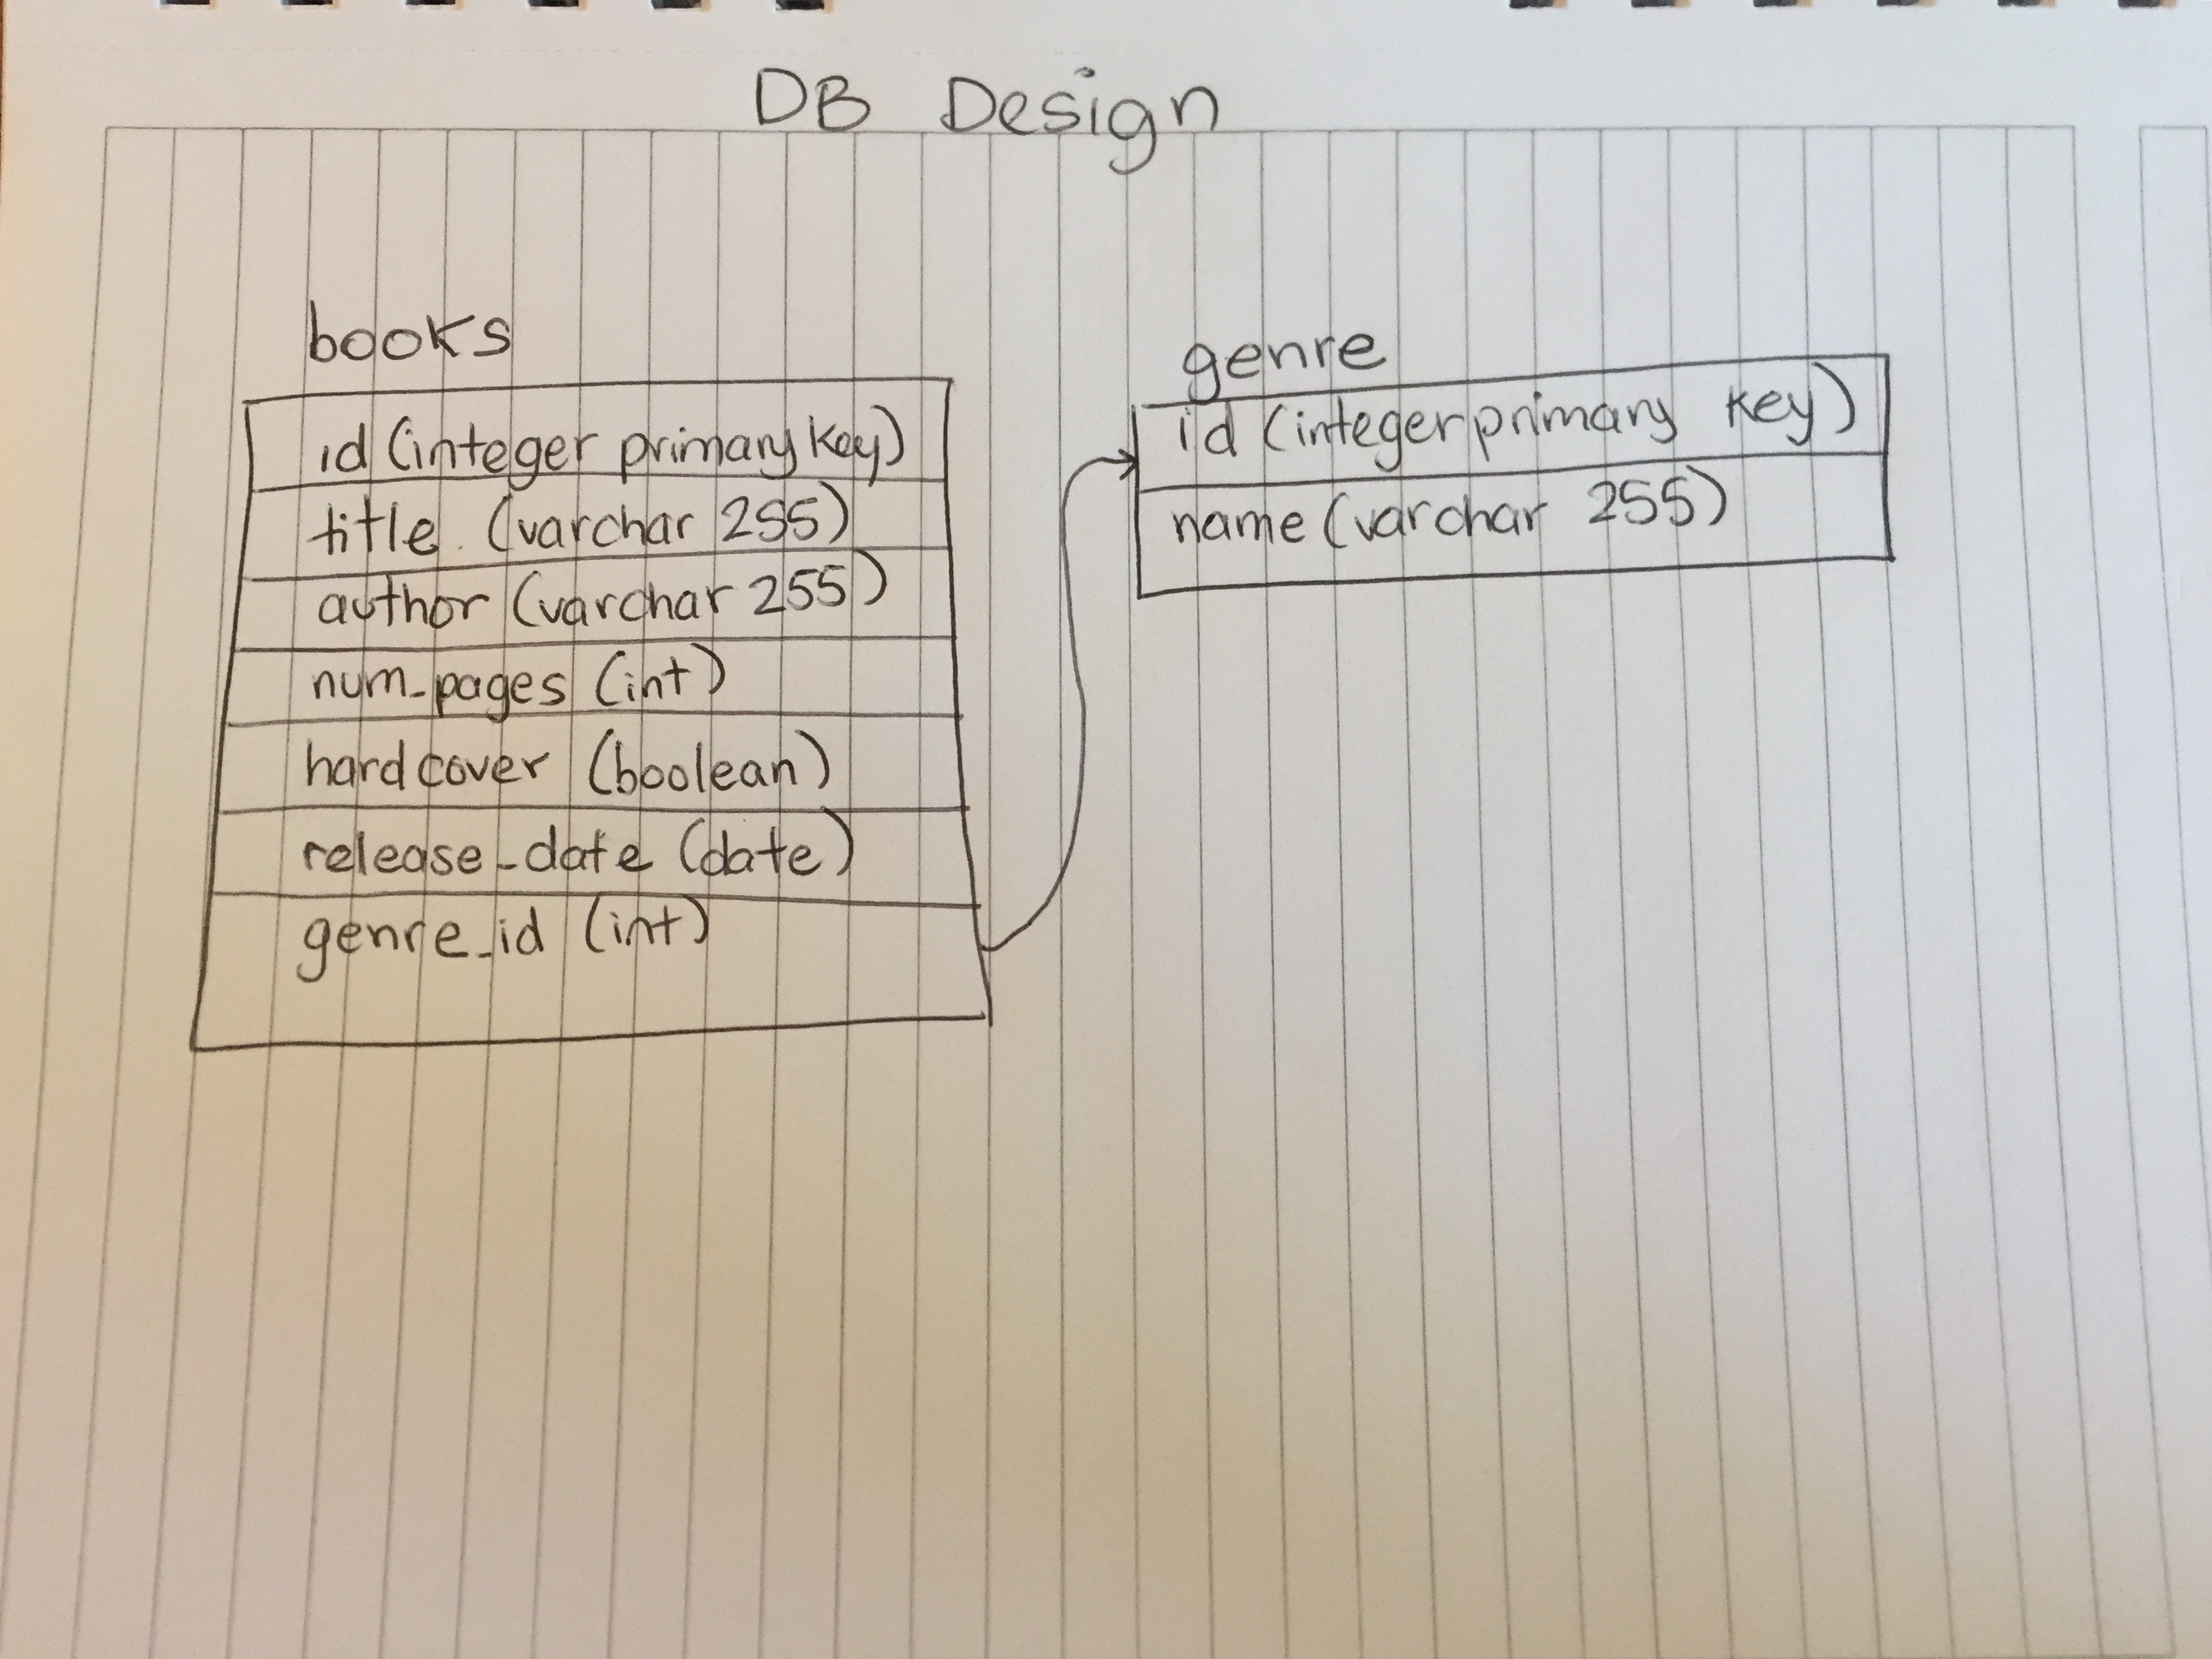 DB Design
books
id (integer primary key)
title (varchar 255)
author (varchar 255)
num_pages (int)
hardcover (boolean)
release_date (date)
genre_id (int)
genre
id (integer primary key)
name (varchar 255)